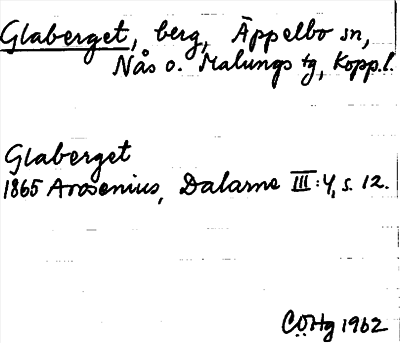 Glaberget, berg, Äppelbo sn,
Nås o. Malungs tg, Kopp.l.
Glaberget
1865 Arosenius, Dalarne III:4, s. 12.
CÖHg 1962